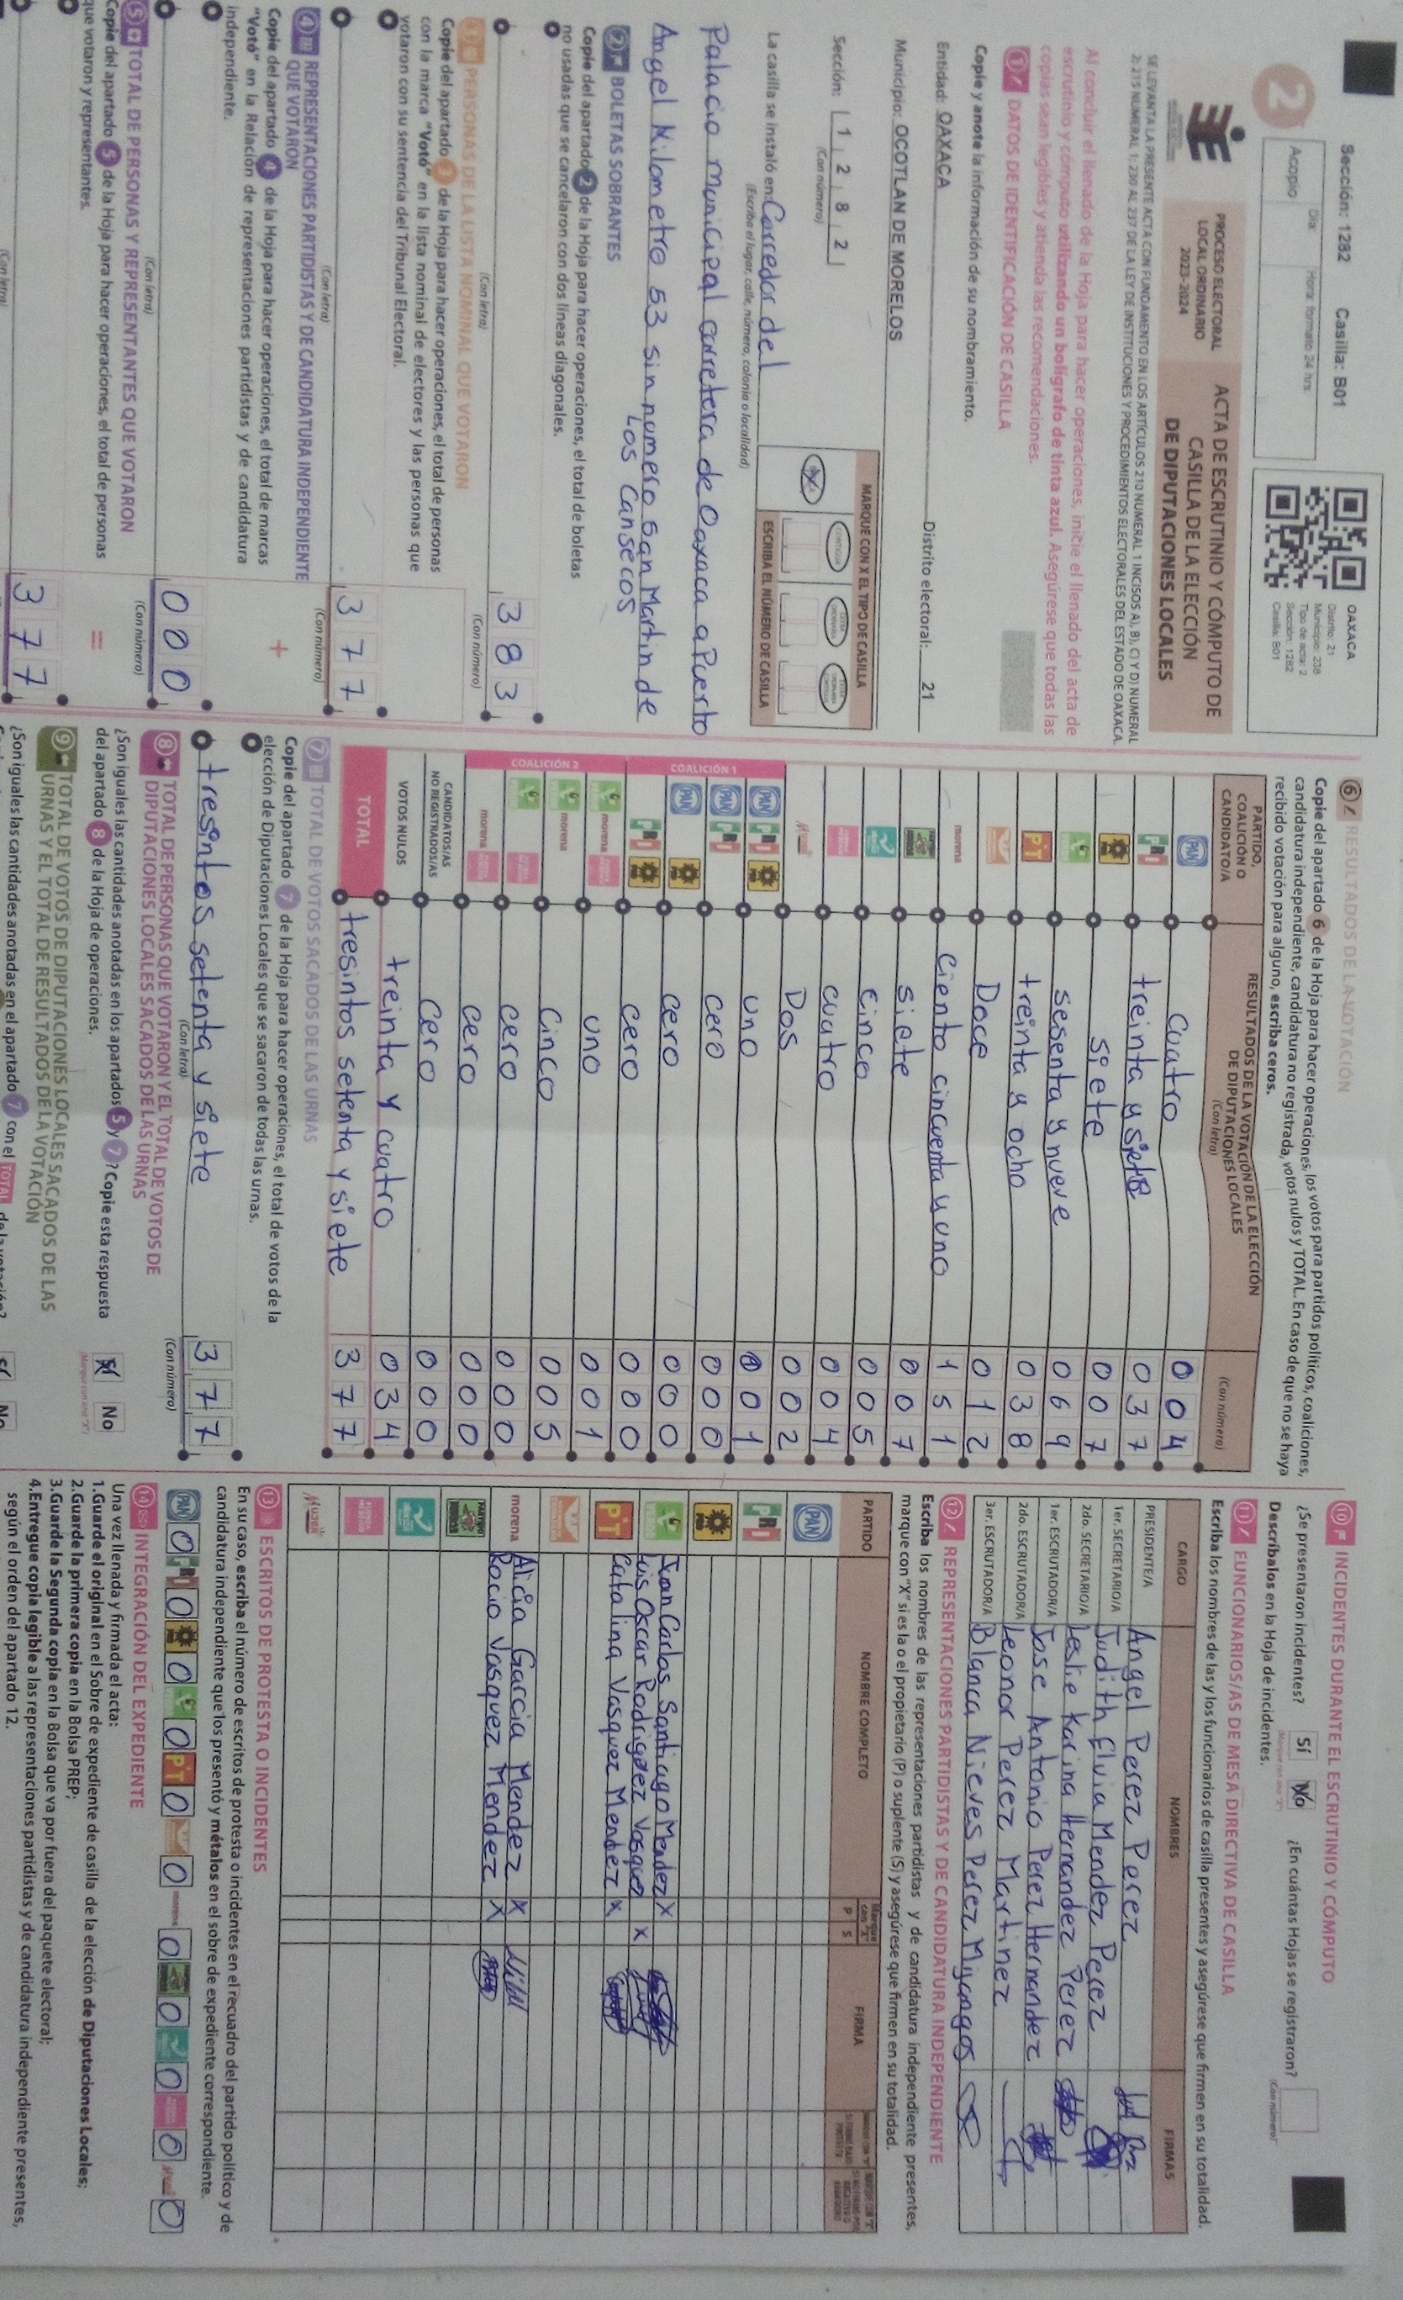 Sección: 1282 Casilla: B01
2
Día: Hora: formato 24 hrs:
Acopio
OAXACA
Distrito: 21
Municipio: 238
Tipo de acta: 2
Sección: 1282
Casilla: B01
PROCESO ELECTORAL
LOCAL ORDINARIO
2023-2024
ACTA DE ESCRUTINIO Y CÓMPUTO DE
CASILLA DE LA ELECCIÓN
DE DIPUTACIONES LOCALES
SE LEVANTA LA PRESENTE ACTA CON FUNDAMENTO EN LOS ARTÍCULOS 210 NUMERAL 1 INCISOS A), B), C) Y D) NUMERAL
2; 215 NUMERAL 1; 230 AL 237 DE LA LEY DE INSTITUCIONES Y PROCEDIMIENTOS ELECTORALES DEL ESTADO DE OAXACA.
Al concluir el llenado de la Hoja para hacer operaciones, inicie el llenado del acta de
escrutinio y cómputo utilizando un bolígrafo de tinta azul. Asegúrese que todas las
copias sean legibles y atienda las recomendaciones.
1 DATOS DE IDENTIFICACIÓN DE CASILLA
Copie y anote la información de su nombramiento.
Entidad: OAXACA Distrito electoral: 21
Municipio: OCOTLAN DE MORELOS
Sección: 1 2 8 2
(Con número)
MARQUE CON X EL TIPO DE CASILLA
ESCRIBA EL NÚMERO DE CASILLA
La casilla se instaló en: Corredor del
(Escriba el lugar, calle, número, colonia o localidad)
Palacio municipal carretera de Oaxaca a Puerto
Angel Kilometro 53 sin numero San Martin de
Los Cansecos
2 BOLETAS SOBRANTES
Copie del apartado 2 de la Hoja para hacer operaciones, el total de boletas
no usadas que se cancelaron con dos líneas diagonales.
383
(Con letra) (Con número)
3 PERSONAS DE LA LISTA NOMINAL QUE VOTARON
Copie del apartado 3 de la Hoja para hacer operaciones, el total de personas
con la marca "Votó" en la lista nominal de electores y las personas que
votaron con su sentencia del Tribunal Electoral.
377
(Con letra) (Con número)
4 REPRESENTACIONES PARTIDISTAS Y DE CANDIDATURA INDEPENDIENTE
QUE VOTARON
Copie del apartado 4 de la Hoja para hacer operaciones, el total de marcas
"Votó" en la Relación de representaciones partidistas y de candidatura
independiente.
+
000
(Con letra) (Con número)
5 TOTAL DE PERSONAS Y REPRESENTANTES QUE VOTARON
Copie del apartado 5 de la Hoja para hacer operaciones, el total de personas
que votaron y representantes.
=
377
(Con letra)
6 RESULTADOS DE LA VOTACIÓN
Copie del apartado 6 de la Hoja para hacer operaciones, los votos para partidos políticos, coaliciones,
candidatura independiente, candidatura no registrada, votos nulos y TOTAL. En caso de que no se haya
recibido votación para alguno, escriba ceros.
PARTIDO,
COALICIÓN O
CANDIDATO/A
RESULTADOS DE LA VOTACIÓN DE LA ELECCIÓN
DE DIPUTACIONES LOCALES
(Con letra) (Con número)
PAN cuatro 004
PRI treinta y siete 037
PRD siete 007
sesenta y nueve 069
PT treinta y ocho 038
Doce 012
morena ciento cincuenta y uno 151
siete 007
cinco 005
cuatro 004
Mujer Dos 002
COALICIÓN 1
PAN PRI PRD uno 001
PAN PRI cero 000
PAN PRD cero 000
PRI PRD cero 000
COALICIÓN 2
morena uno 001
morena cinco 005
cero 000
morena cero 000
CANDIDATOS/AS
NO REGISTRADOS/AS cero 000
VOTOS NULOS treinta y cuatro 034
TOTAL tresintos setenta y siete 377
7 TOTAL DE VOTOS SACADOS DE LAS URNAS
Copie del apartado 7 de la Hoja para hacer operaciones, el total de votos de la
elección de Diputaciones Locales que se sacaron de todas las urnas.
tresintos setenta y siete 377
(Con letra) (Con número)
8 TOTAL DE PERSONAS QUE VOTARON Y EL TOTAL DE VOTOS DE
DIPUTACIONES LOCALES SACADOS DE LAS URNAS
¿Son iguales las cantidades anotadas en los apartados 5 y 7? Copie esta respuesta
del apartado 8 de la Hoja de operaciones.
Sí No
9 TOTAL DE VOTOS DE DIPUTACIONES LOCALES SACADOS DE LAS
URNAS Y EL TOTAL DE RESULTADOS DE LA VOTACIÓN
¿Son iguales las cantidades anotadas en el apartado 7 con el TOTAL de la votación?
Sí No
10 INCIDENTES DURANTE EL ESCRUTINIO Y CÓMPUTO
¿Se presentaron incidentes? Sí No ¿En cuántas Hojas se registraron?
Descríbalos en la Hoja de incidentes. (Con número)
11 FUNCIONARIOS/AS DE MESA DIRECTIVA DE CASILLA
Escriba los nombres de las y los funcionarios de casilla presentes y asegúrese que firmen en su totalidad.
CARGO NOMBRES FIRMAS
PRESIDENTE/A Angel Perez Perez
1er. SECRETARIO/A Judith Elvia Mendez Perez
2do. SECRETARIO/A Leslie Karina Hernandez Perez
1er. ESCRUTADOR/A Jose Antonio Perez Hernandez
2do. ESCRUTADOR/A Leonor Perez Martinez
3er. ESCRUTADOR/A Blanca Nieves Perez Myangos
12 REPRESENTACIONES PARTIDISTAS Y DE CANDIDATURA INDEPENDIENTE
Escriba los nombres de las representaciones partidistas y de candidatura independiente presentes,
marque con "X" si es la o el propietario (P) o suplente (S) y asegúrese que firmen en su totalidad.
PARTIDO NOMBRE COMPLETO P S FIRMA
PAN
PRI
PRD
Ivan Carlos Santiago Mendez X
Luis Oscar Rodriguez Vasquez X
PT Catalina Vasquez Mendez X
morena Alicia Garcia Mendez X
Rocio Vasquez Mendez X
Mujer
13 ESCRITOS DE PROTESTA O INCIDENTES
En su caso, escriba el número de escritos de protesta o incidentes en el recuadro del partido político y de
candidatura independiente que los presentó y métalos en el sobre de expediente correspondiente.
PAN 0 PRI 0 PRD 0 0 PT 0 0 morena 0 0 0 0 Mujer 0
14 INTEGRACIÓN DEL EXPEDIENTE
Una vez llenada y firmada el acta:
1.Guarde el original en el Sobre de expediente de casilla de la elección de Diputaciones Locales;
2.Guarde la primera copia en la Bolsa PREP;
3.Guarde la Segunda copia en la Bolsa que va por fuera del paquete electoral;
4.Entregue copia legible a las representaciones partidistas y de candidatura independiente presentes,
según el orden del apartado 12.